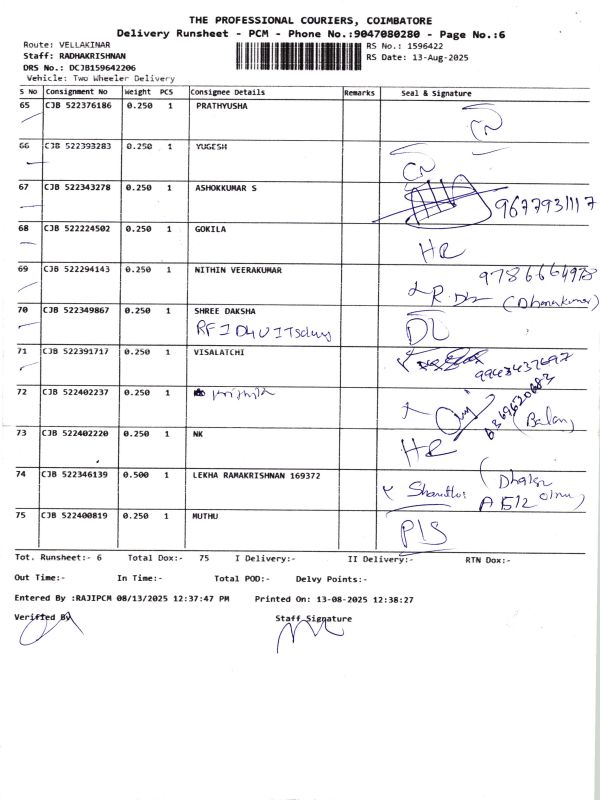 THE PROFESSIONAL COURIERS, COIMBATORE
Delivery Runsheet - PCM - Phone No.:9047080280 - Page No.:6
Route: VELLAKINAR
RS No.: 1596422
Staff: RADHAKRISHNAN
RS Date: 13-Aug-2025
DRS No.: DCJB159642206
Vehicle: Two Wheeler Delivery
S No Consignment No Weight PCS Consignee Details Remarks Seal & Signature
65 CJB 522376186 0.250 1 PRATHYUSHA
66 CJB 522393283 0.250 1 YUGESH
CN
67 CJB 522343278 0.250 1 ASHOKKUMAR S
9677931117
68 CJB 522224502 0.250 1 GOKILA
HR
69 CJB 522294143 0.250 1 NITHIN VEERAKUMAR
9786664978
(Dhanakumar)
70 CJB 522349867 0.250 1 SHREE DAKSHA
DL
71 CJB 522391717 0.250 1 VISALATCHI
9943437697
72 CJB 522402237 0.250 1
6369620683
(Balan)
73 CJB 522402220 0.250 1 NK
HR
74 CJB 522346139 0.500 1 LEKHA RAMAKRISHNAN 169372
75 CJB 522400819 0.250 1 MUTHU
P/S
Tot. Runsheet:- 6 Total Dox:- 75 I Delivery:- II Delivery:- RTN Dox:-
Out Time:- In Time:- Total POD:- Delvy Points:-
Entered By :RAJIPCM 08/13/2025 12:37:47 PM Printed On: 13-08-2025 12:38:27
Verified By Staff Signature